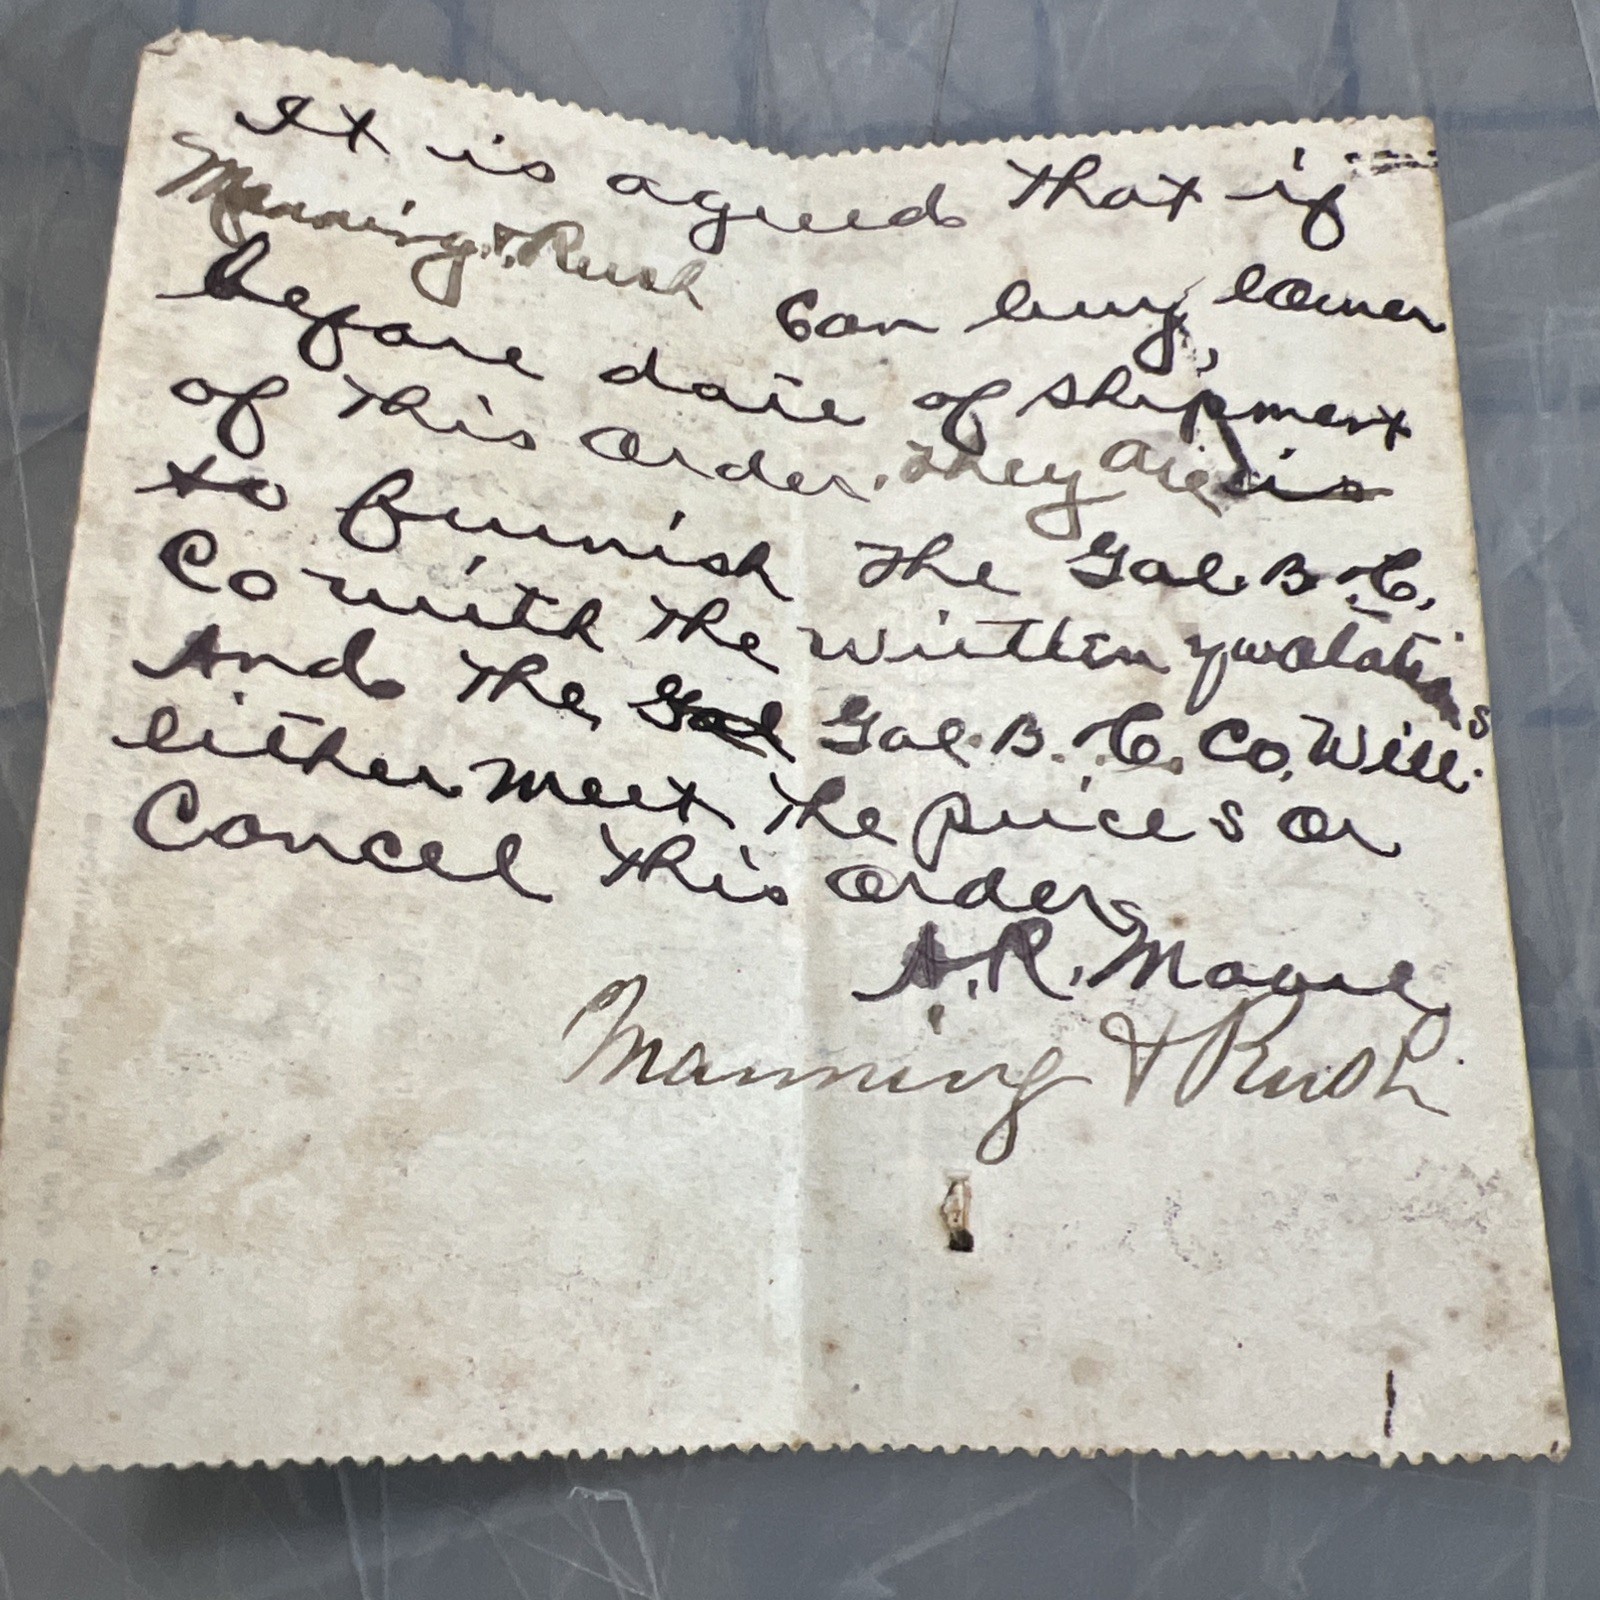 It is agreed that if
Manning & Rush can buy lower
before date of shipment
of this order. They are is
to furnish the Gal. B. & C.
Co with the written quotations
And the Gal Gal. B. & C. Co. Will
either meet the prices or
Cancel this order
A. R. Moore
Manning & Rush